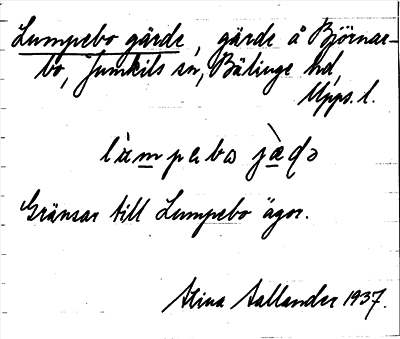 Lumpebo gärde, gärde å Björnar-
bo, Jumkils sn, Bälinge hd,
Upps. l.
Gränsar till Lumpebo ägor.
Stina Aallander 1937.